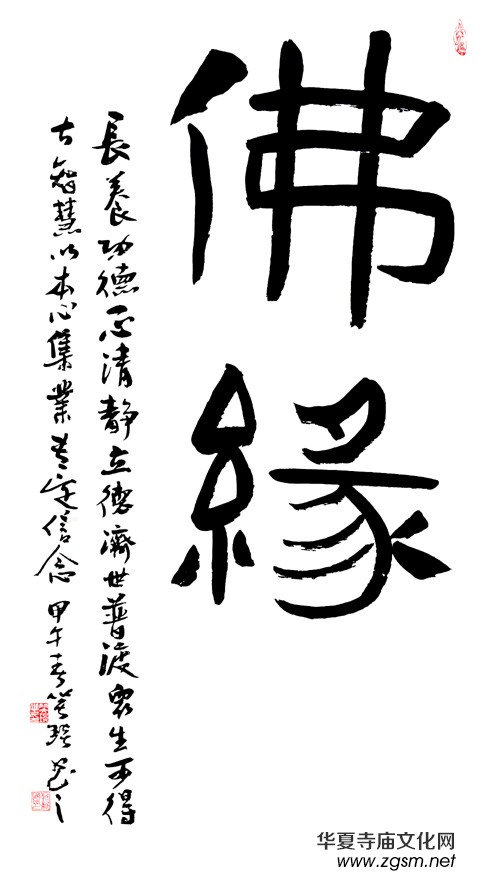 佛緣
長養功德心清靜立德濟世普渡眾生可得
大智慧以本心集業定信念 甲午春書之
华夏寺庙文化网
www.zgsm.net